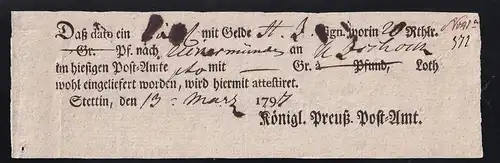 Daß dato ein mit Gelde Sign. worin 20 Rthlr.
Gr. Pf. nach Uckermünde an
im hiesigen Post-Amte mit — Gr. à Pfund, Loth
wohl eingeliefert worden, wird hiermit attestiret.
Stettin, den 13 März 1797
Königl. Preuß. Post-Amt.